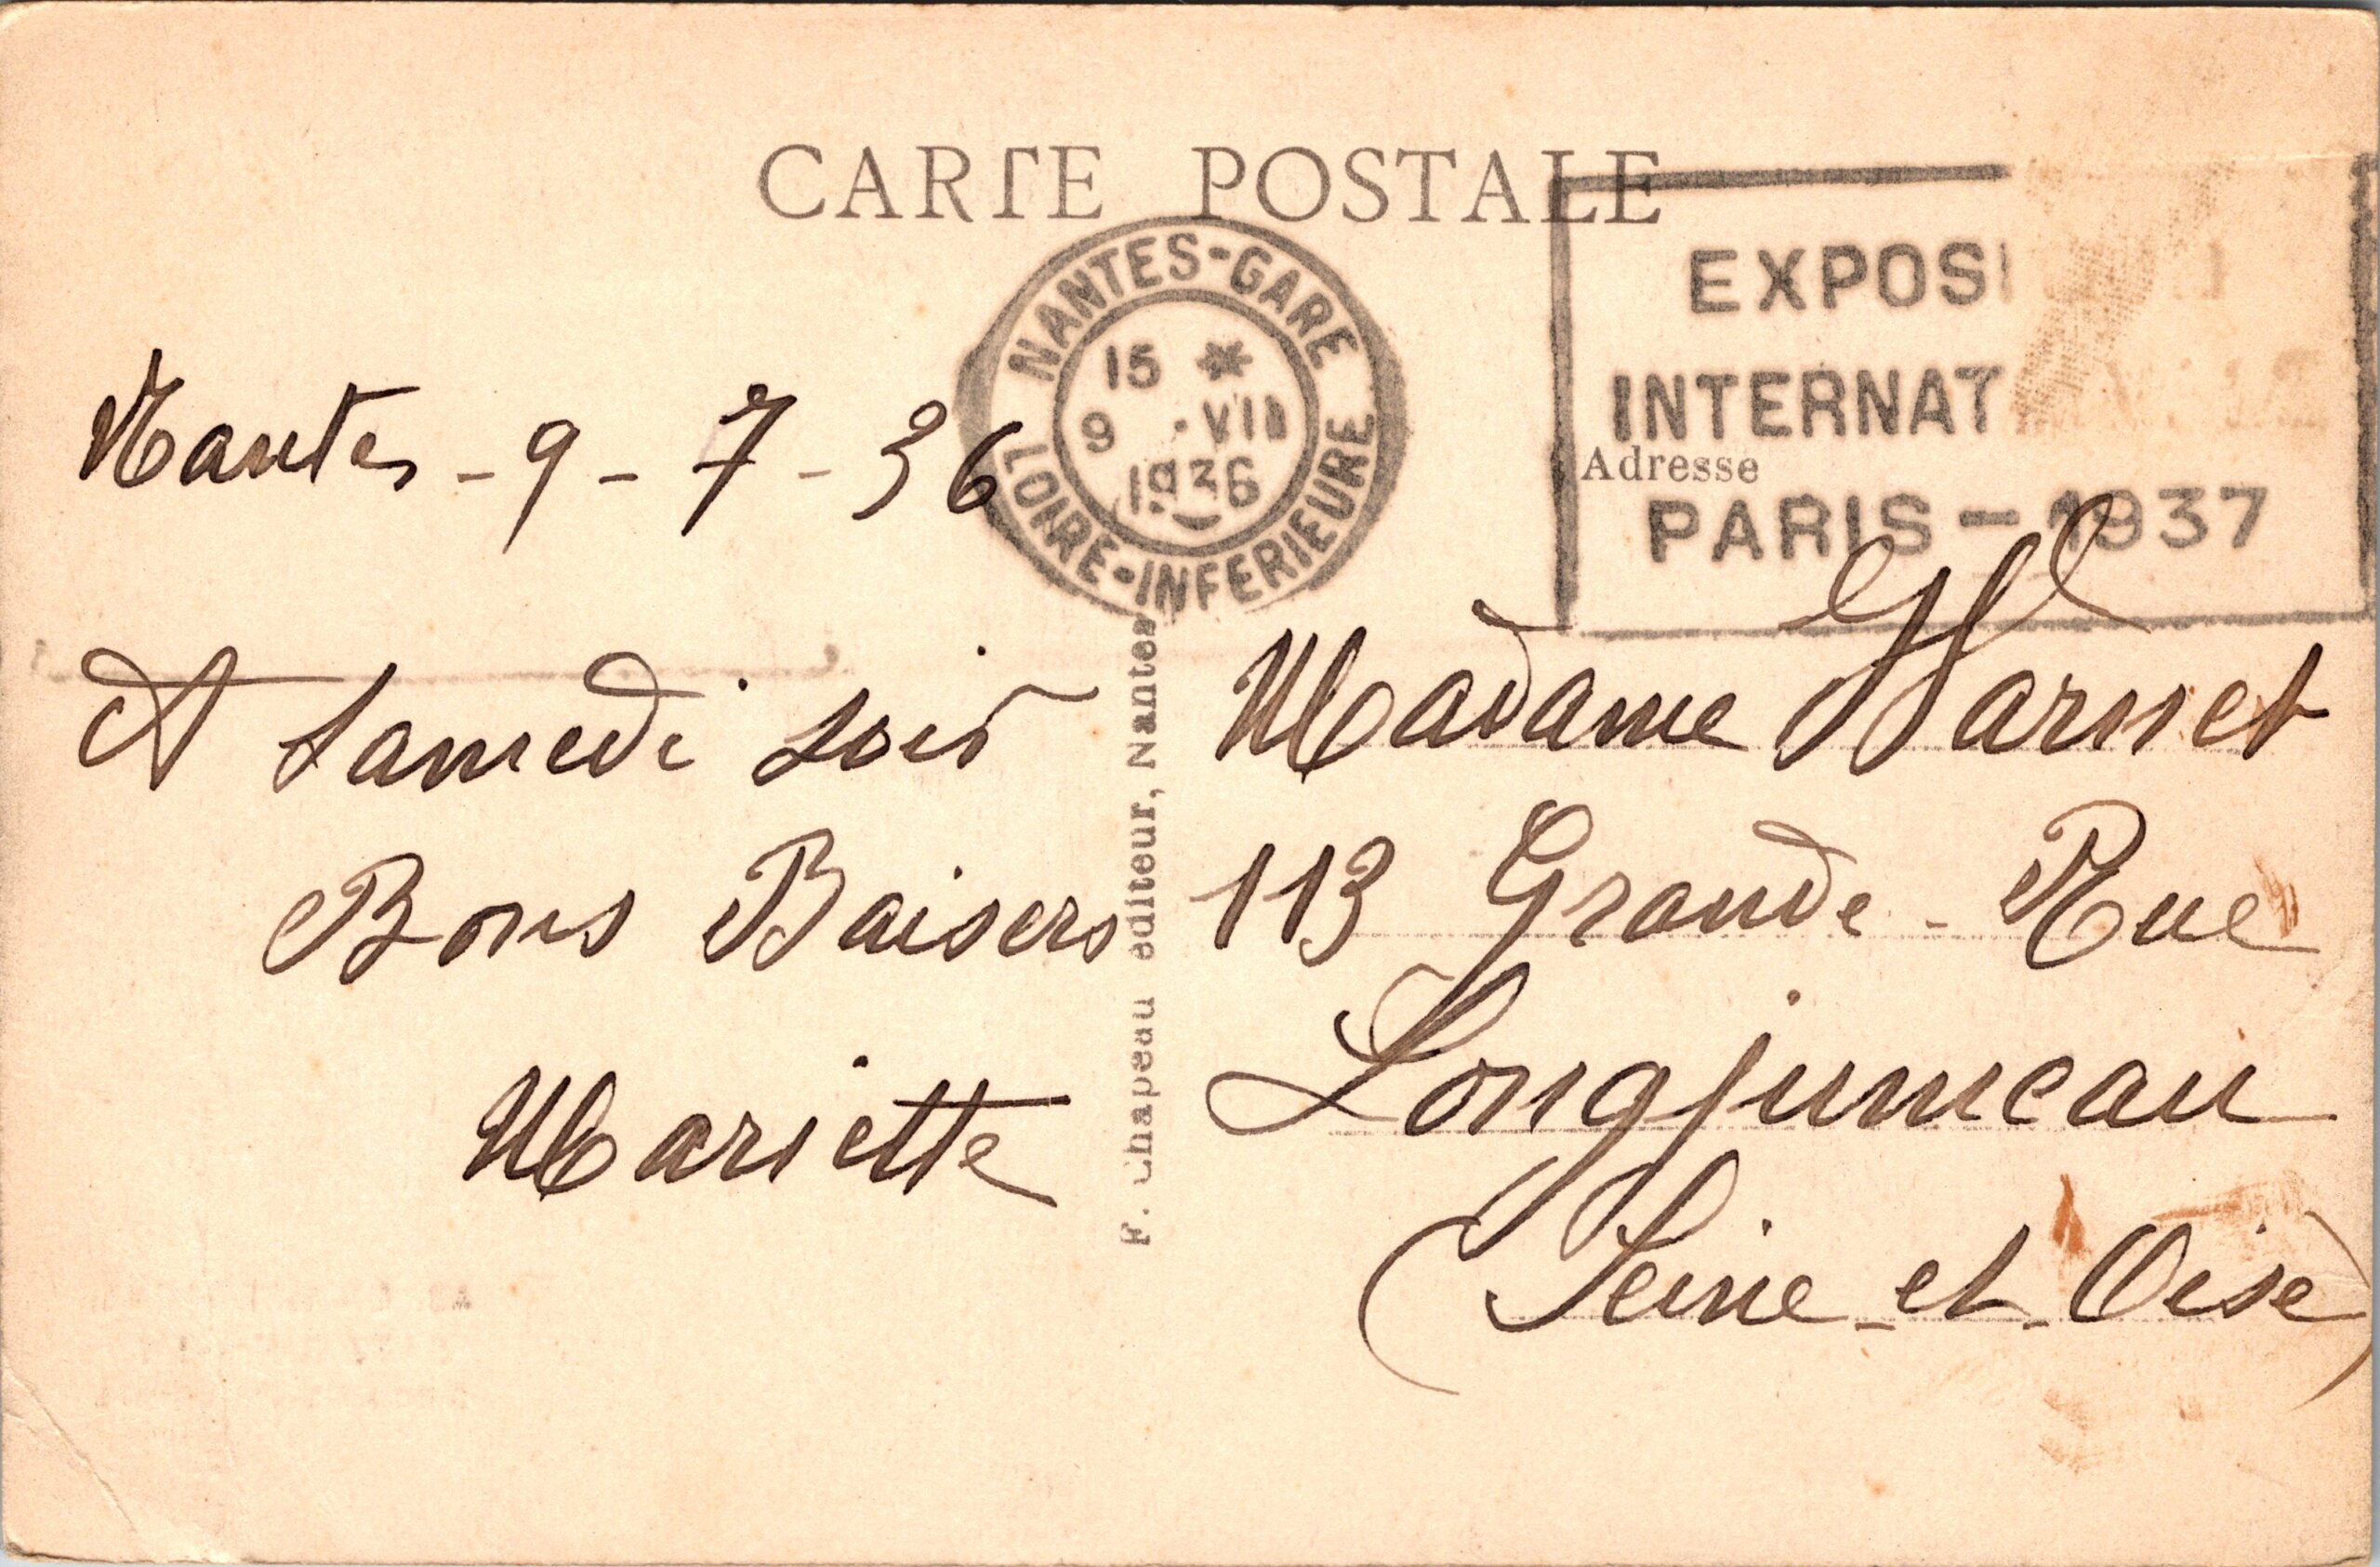 CARTE POSTALE
NANTES-GARE
15 *
9 ·VII
1936
LOIRE-INFERIEURE
EXPOSI
INTERNAT
PARIS-1937
Adresse
Nantes - 9 - 7 - 36
A samedi soir
Bons Baisers
Mariette
F. Chapeau éditeur, Nantes
Madame Warnet
113 Grande-Rue
Longjumeau
(Seine-et-Oise)